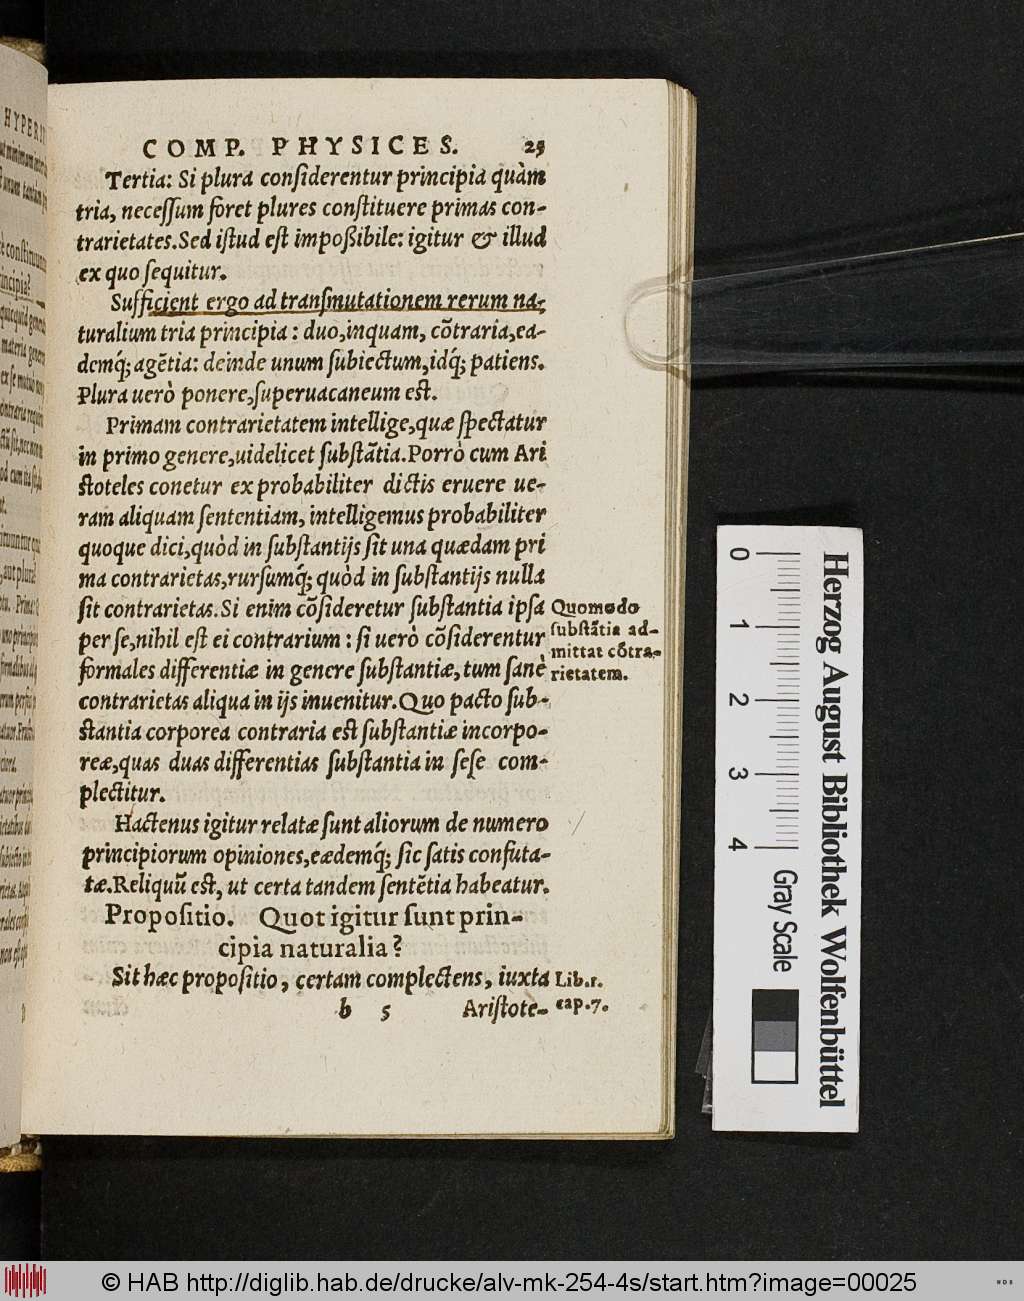 COMP. PHYSICES. 25
Tertia: Si plura conſiderentur principia quàm
tria, neceſſum foret plures conſtituere primas con-
trarietates. Sed iſtud eſt impoßibile: igitur & illud
ex quo ſequitur.
Sufficient ergo ad tranſmutationem rerum na-
turalium tria principia: duo, inquam, cõtraria, ea-
demq́; agẽtia: deinde unum ſubiectum, idq́; patiens.
Plura uerò ponere, ſuperuacaneum eſt.
Primam contrarietatem intellige, quæ ſpectatur
in primo genere, uidelicet ſubſtãtia. Porrò cum Ari
ſtoteles conetur ex probabiliter dictis eruere ue-
ram aliquam ſententiam, intelligemus probabiliter
quoque dici, quòd in ſubſtantijs ſit una quædam pri
ma contrarietas, rurſumq́; quòd in ſubſtantijs nulla
ſit contrarietas. Si enim cõſideretur ſubſtantia ipſa
per ſe, nihil eſt ei contrarium: ſi uerò cõſiderentur
formales differentiæ in genere ſubſtantiæ, tum ſanè
contrarietas aliqua in ijs inuenitur. Quo pacto ſub-
ſtantia corporea contraria eſt ſubſtantiæ incorpo-
reæ, quas duas differentias ſubſtantia in ſeſe com-
plectitur.
Quomodo
ſubſtãtia ad-
mittat cõtra-
rietatem.
Hactenus igitur relatæ ſunt aliorum de numero
principiorum opiniones, eædemq́; ſic ſatis confuta-
tæ. Reliquũ eſt, ut certa tandem ſentẽtia habeatur.
Propoſitio. Quot igitur ſunt prin-
cipia naturalia?
Sit hæc propoſitio, certam complectens, iuxta
Lib.1.
cap.7.
b 5 Ariſtote-
HYPER
0 1 2 3 4
Gray Scale
Herzog August Bibliothek Wolfenbüttel
© HAB http://diglib.hab.de/drucke/alv-mk-254-4s/start.htm?image=00025